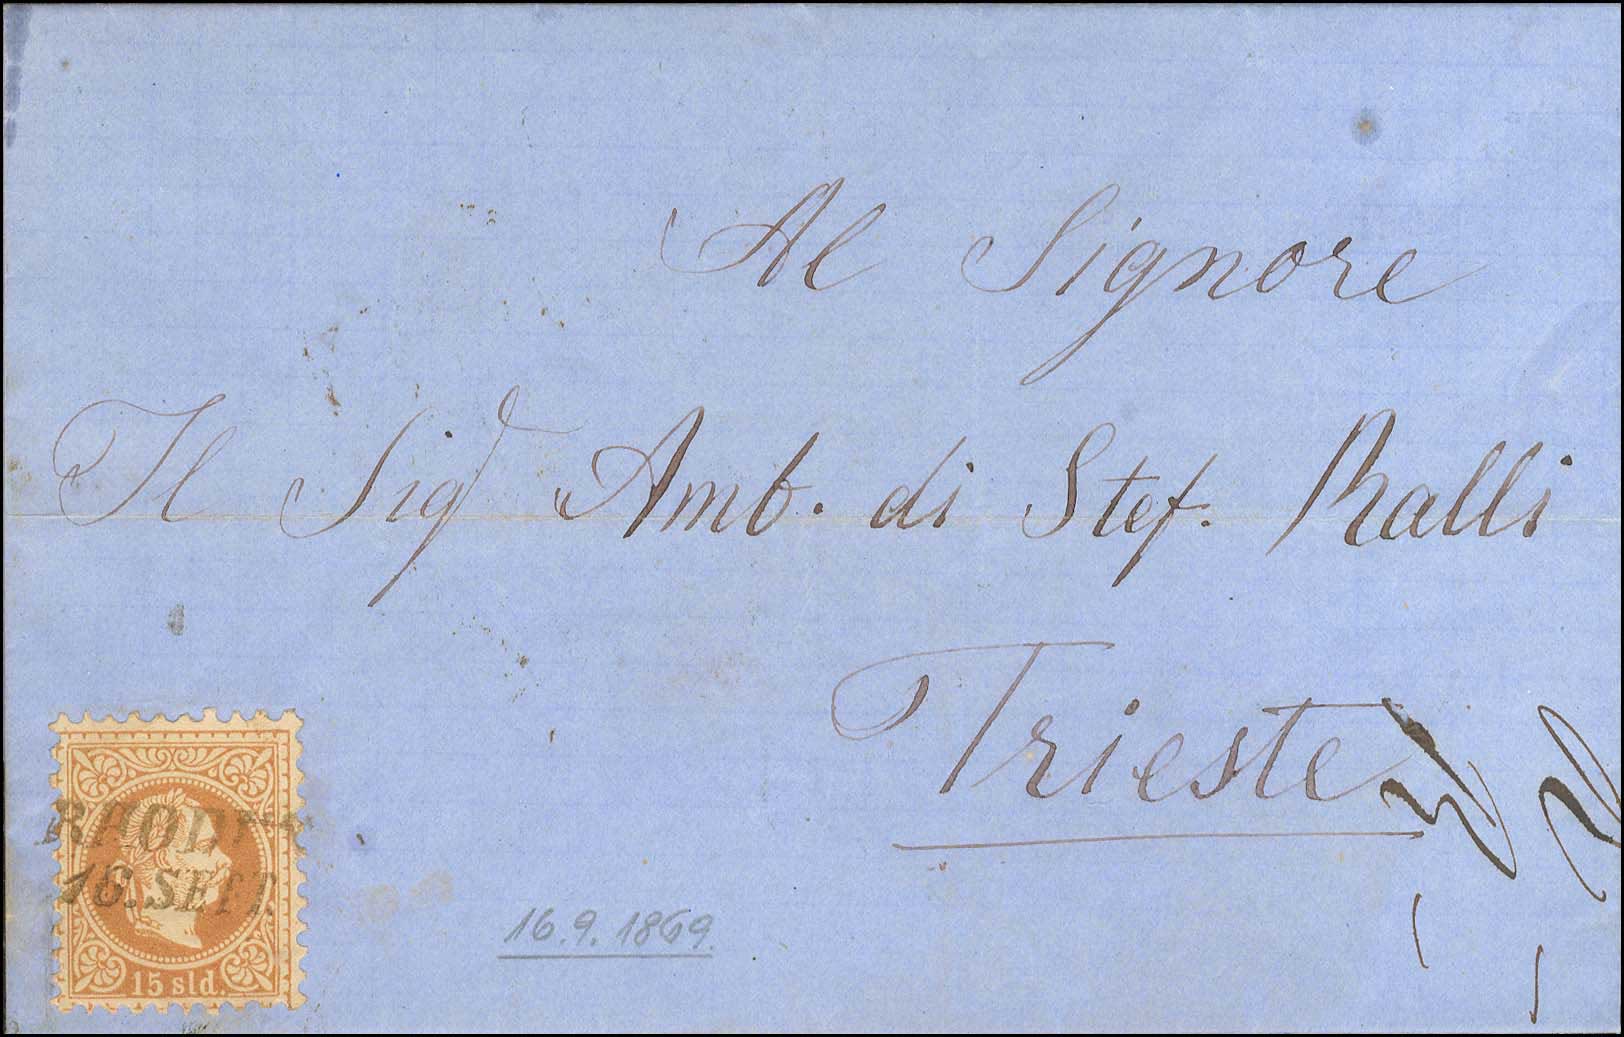 Al Signore
Il Sigr Amb. di Stef. Ralli
Trieste
16. SEPT.
15 sld.
16.9.1869.